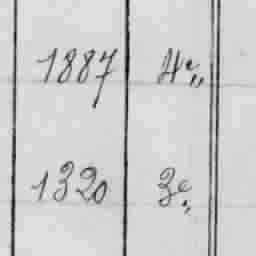 1887 4e„
1320 3e„